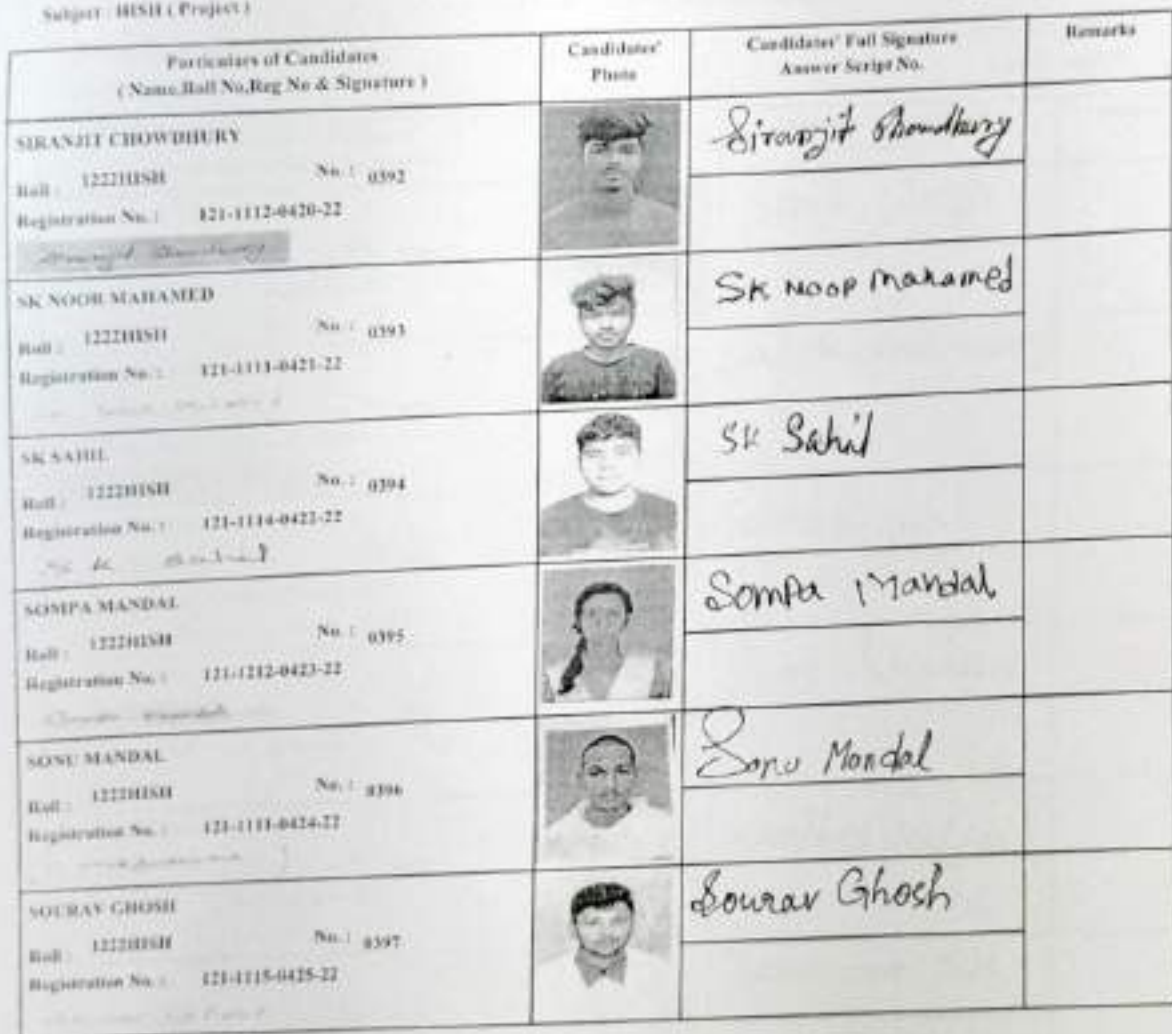 Subject : HISH ( Project )
Particulars of Candidates
( Name,Roll No,Reg No & Signature )
Candidates'
Photo
Candidates' Full Signature
Answer Script No.
Remarks
SIRANJIT CHOWDHURY
Roll : 1222HISH No. : 0392
Registration No. : 121-1112-0420-22
Siranjit Chowdhury
SK NOOR MAHAMED
Roll : 1222HISH No. : 0393
Registration No. : 121-1111-0421-22
SK Noor Mahamed
SK SAHIL
Roll : 1222HISH No. : 0394
Registration No. : 121-1114-0422-22
SK Sahil
SK Sahil
SOMPA MANDAL
Roll : 1222HISH No. : 0395
Registration No. : 121-1212-0423-22
Sompa Mandal
SONU MANDAL
Roll : 1222HISH No. : 0396
Registration No. : 121-1111-0424-22
Sonu Mondal
SOURAV GHOSH
Roll : 1222HISH No. : 0397
Registration No. : 121-1115-0425-22
Sourav Ghosh